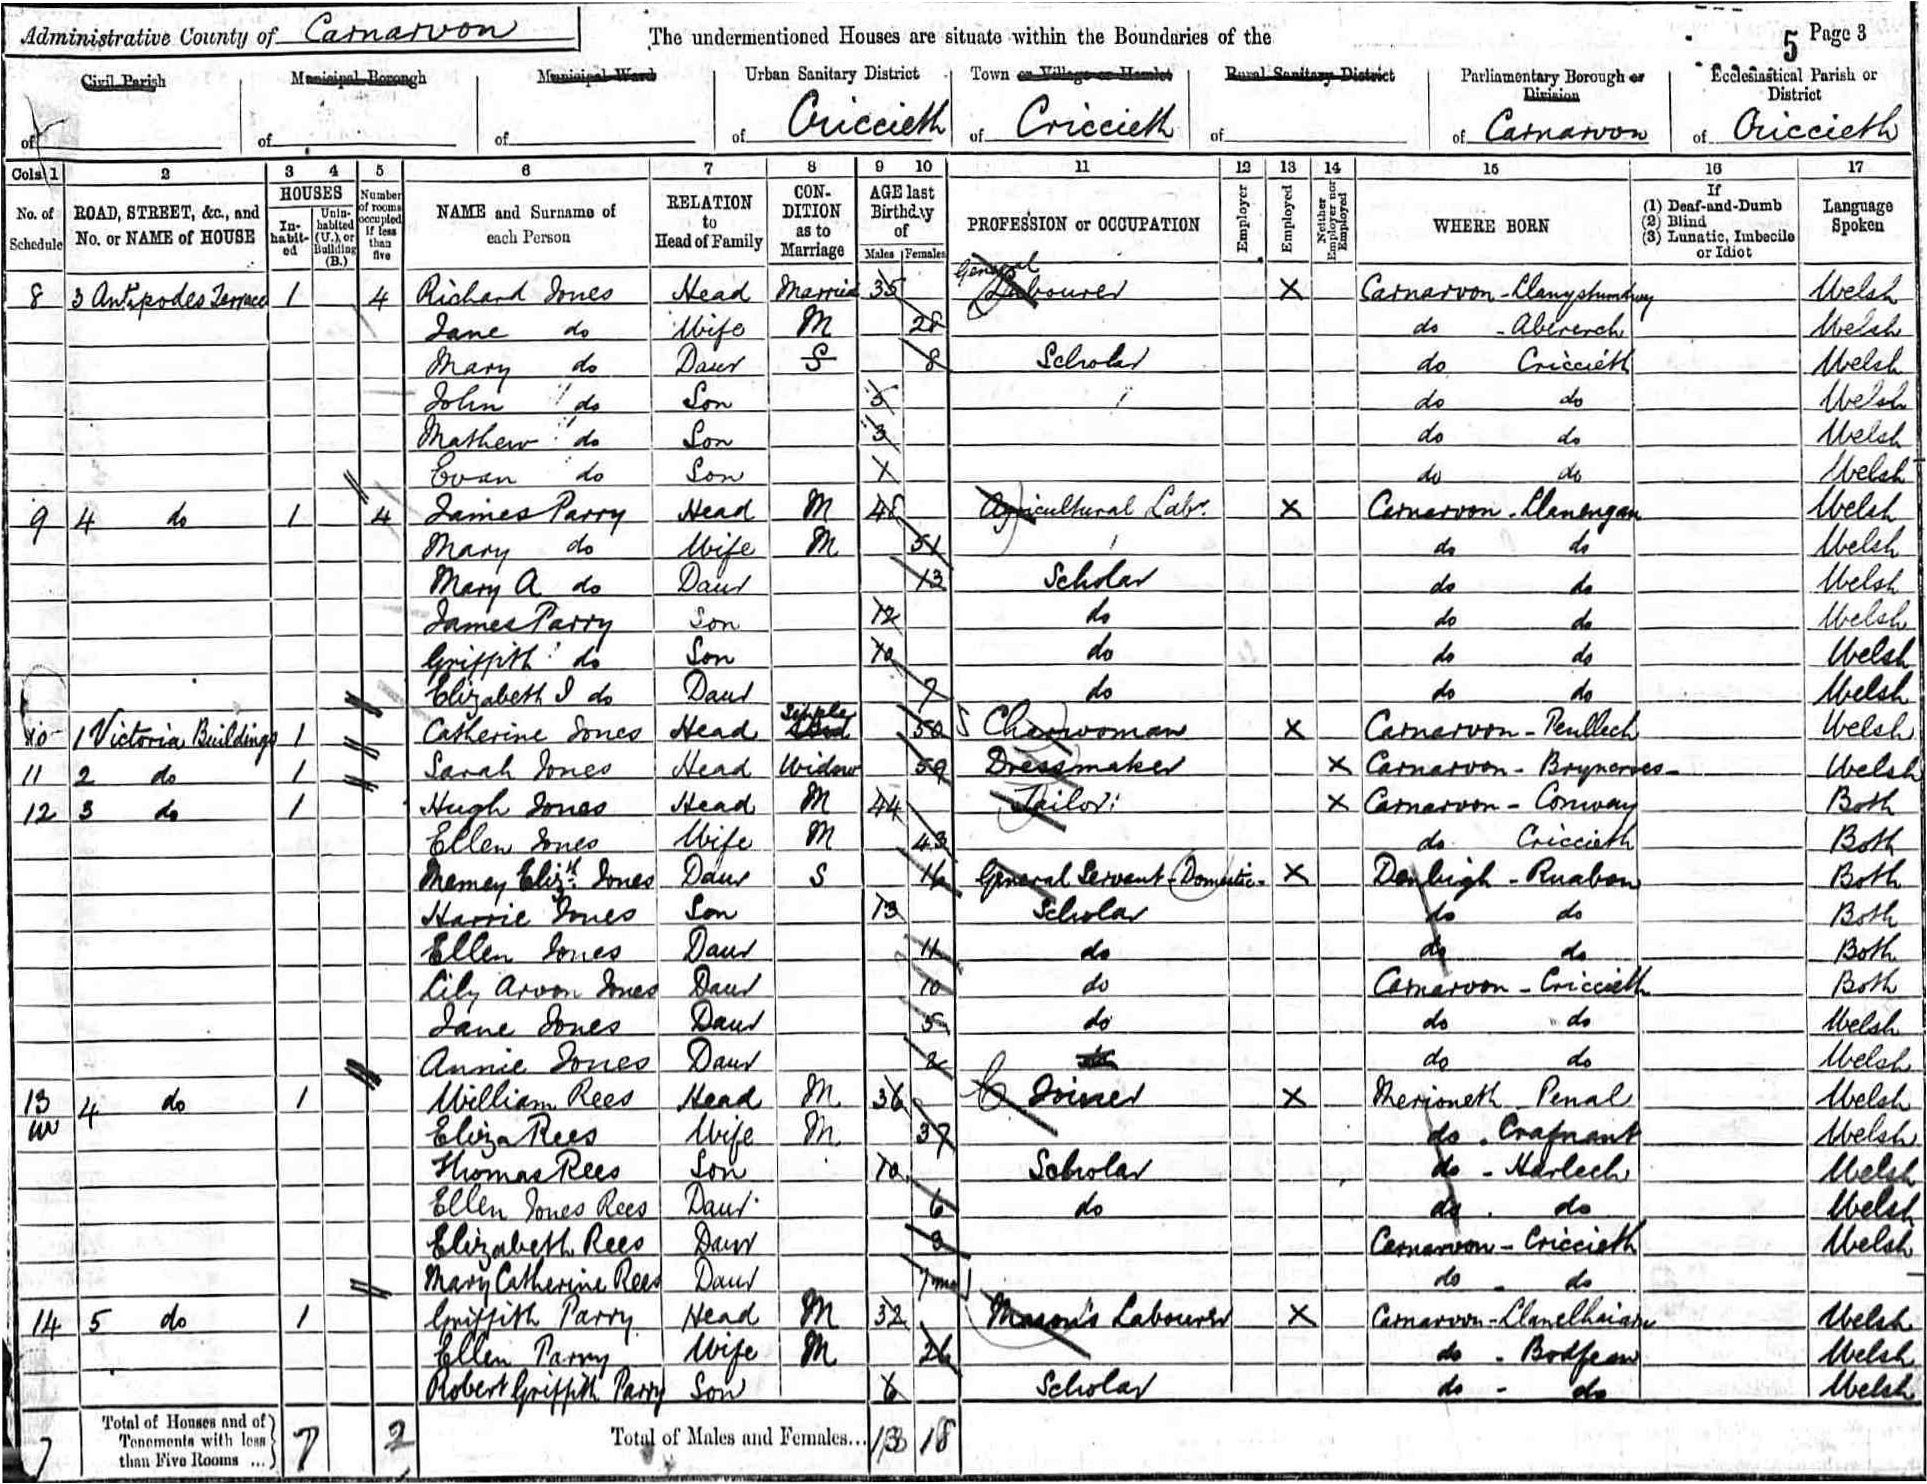 Administrative County of Carnarvon
The undermentioned Houses are situate within the Boundaries of the
5 Page 3
Civil Parish of
Municipal Borough of
Municipal Ward of
Urban Sanitary District of Criccieth
Town or Village or Hamlet of Criccieth
Rural Sanitary District of
Parliamentary Borough or Division of Carnarvon
Ecclesiastical Parish or District of Criccieth
Cols. 1 2 3 4 5 6 7 8 9 10 11 12 13 14 15 16 17
No. of Schedule
ROAD, STREET, &c., and No. or NAME of HOUSE
HOUSES
In-habit-ed
Unin-habited (U.), or Building (B.)
Number of rooms occupied if less than five
NAME and Surname of each Person
RELATION to Head of Family
CON-DITION as to Marriage
AGE last Birthday of
Males Females
PROFESSION or OCCUPATION
Employer
Employed
Neither Employer nor Employed
WHERE BORN
If
(1) Deaf-and-Dumb
(2) Blind
(3) Lunatic, Imbecile or Idiot
Language Spoken
8 3 Antipodes Terrace 1 4 Richard Jones Head Married 35 General Labourer X Carnarvon - Llanystumdwy Welsh
Jane do Wife M 28 do - Abererch Welsh
Mary do Daur S 8 Scholar do Criccieth Welsh
John do Son 5 do do Welsh
Mathew do Son 3 do do Welsh
Evan do Son 1 do do Welsh
9 4 do 1 4 James Parry Head M 48 Agricultural Labr. X Carnarvon - Llanengan Welsh
Mary do Wife M 51 do do Welsh
Mary A do Daur 13 Scholar do do Welsh
James Parry Son 12 do do do Welsh
Griffith do Son 10 do do do Welsh
Elizabeth J do Daur 7 do do do Welsh
10 1 Victoria Buildings 1 Catherine Jones Head Single 50 Charwoman X Carnarvon - Penllech Welsh
11 2 do 1 Sarah Jones Head Widow 59 Dressmaker X Carnarvon - Bryncroes Welsh
12 3 do 1 Hugh Jones Head M 44 Tailor X Carnarvon - Conway Both
Ellen Jones Wife M 43 do Criccieth Both
Memey Elizth. Jones Daur S 16 General Servant - Domestic - X Denbigh - Ruabon Both
Harrie Jones Son 13 Scholar do do Both
Ellen Jones Daur 11 do do do Both
Lily Arvon Jones Daur 10 do Carnarvon - Criccieth Both
Jane Jones Daur 5 do do do Welsh
Annie Jones Daur 2 do do Welsh
13 4 do 1 William Rees Head M 36 Joiner X Merioneth Penal Welsh
Eliza Rees Wife M 37 do - Crafnant Welsh
Thomas Rees Son 10 Scholar do - Harlech Welsh
Ellen Jones Rees Daur 6 do do - do Welsh
Elizabeth Rees Daur 3 Carnarvon - Criccieth Welsh
Mary Catherine Rees Daur 7 mo do - do
14 5 do 1 Griffith Parry Head M 32 Mason's Labourer X Carnarvon - Llanelhaiarn Welsh
Ellen Parry Wife M 26 do - Bodfean Welsh
Robert Griffith Parry Son 6 Scholar do - do Welsh
7 Total of Houses and of Tenements with less than Five Rooms ... 7 2 Total of Males and Females... 13 18